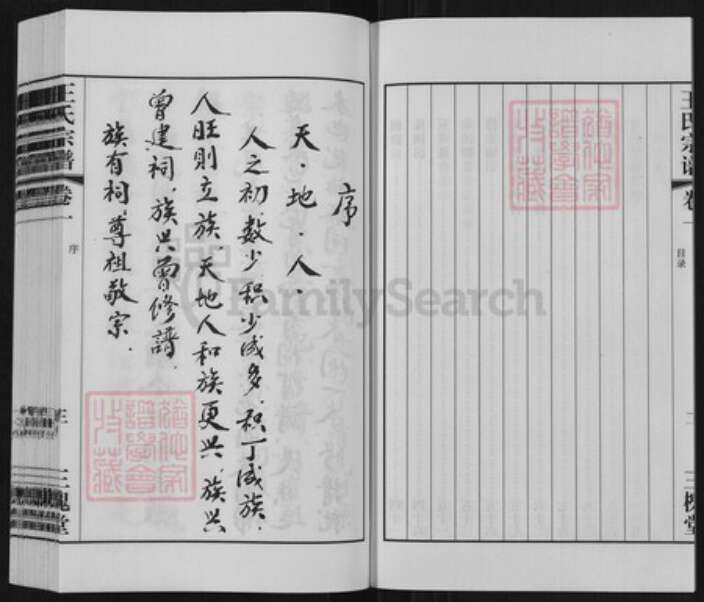 王氏宗谱
卷一
目录
二
三槐堂
序
天．地．人．
人之初．数少积少成多．积丁成族．
人旺则立族．天地人和族更兴．族兴
曾建祠．族兴曾修譜．
族有祠．尊祖敬宗．
王氏宗譜
卷一
序
三
三槐堂
FamilySearch